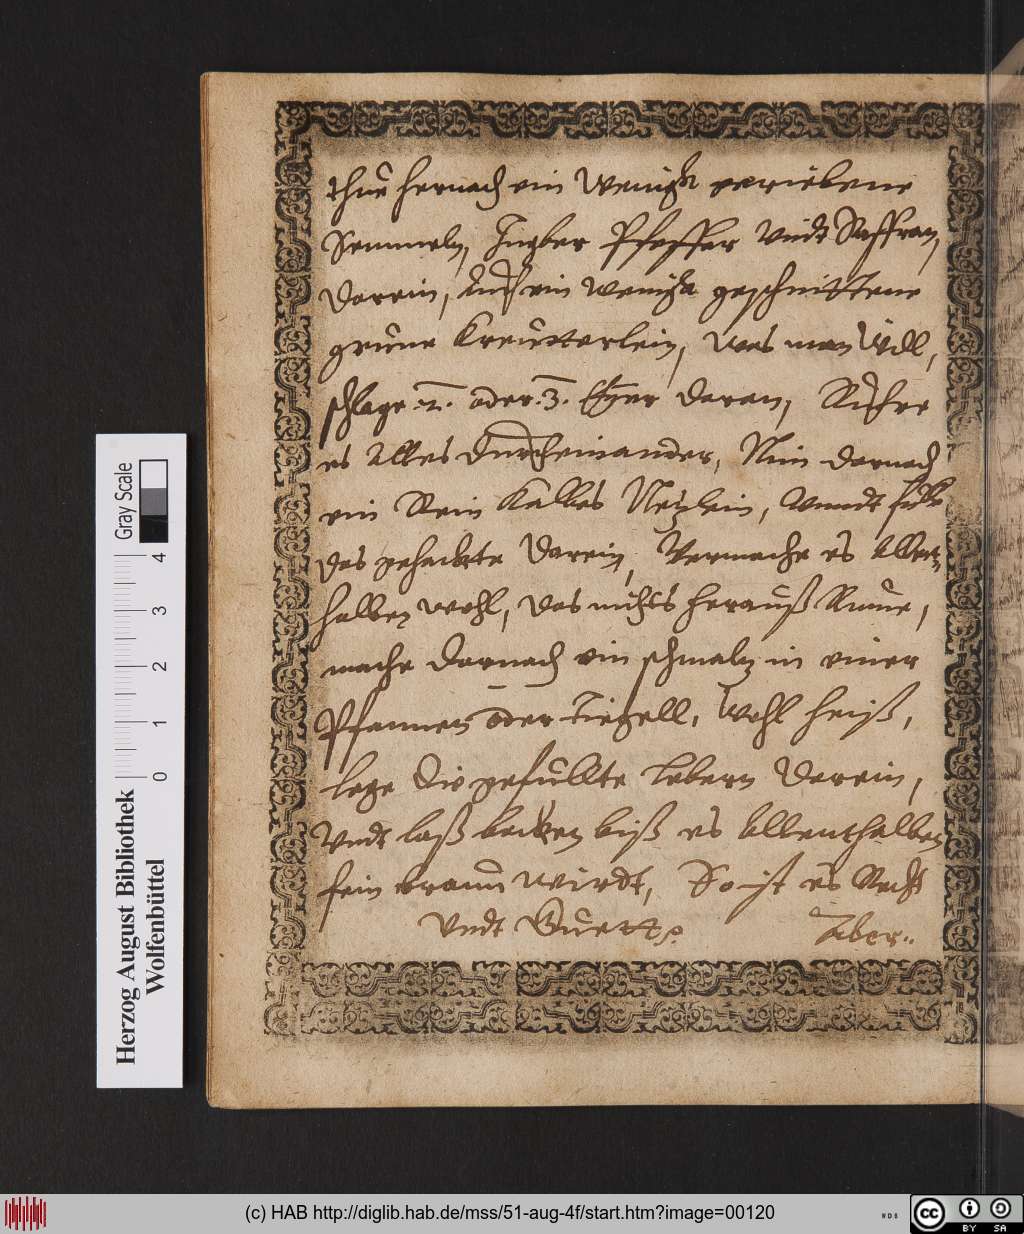 thue hernach ein Wenigk geriebene
Semmeln, Ingber Pfeffer Vndt Saffran,
darein, Auch ein wenigk geschnittene
grüne Kreutterlein, was man Will,
schlage .2. oder .3. Eÿer daran, Rühre
es Alles durcheinander, Nim darnach
ein Rein Kalbes Netzlein, Vnndt füll
das gehackte darein, Vermache es Allent-
halben wohl, das nichts herauß Rinne,
mache darnach ein schmaltz in einer
Pfannen oder Tiegell, Wohl heiß,
lege die gefullte lebern darein,
Vndt laß backen biß es Allenthalben
fein braun wirdt, So ist es Recht
Vndt Guett.
Aber..
Gray Scale
4
3
2
1
0
Herzog August Bibliothek
Wolfenbüttel
(c) HAB http://diglib.hab.de/mss/51-aug-4f/start.htm?image=00120
WDB
cc
BY SA